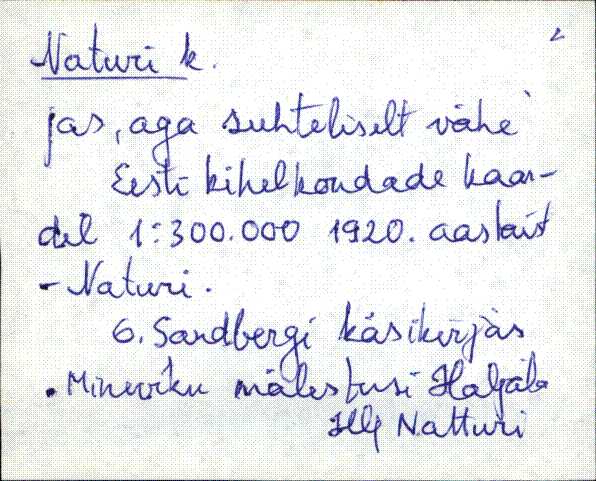 2
Naturi k.
jas, aga suhteliselt vähe
Eesti kihelkondade kaar-
del 1:300.000 1920. aastaist
- Naturi.
G. Sandbergi käsikirjas
Mineviku mälestusi Haljala
Hlj Natturi